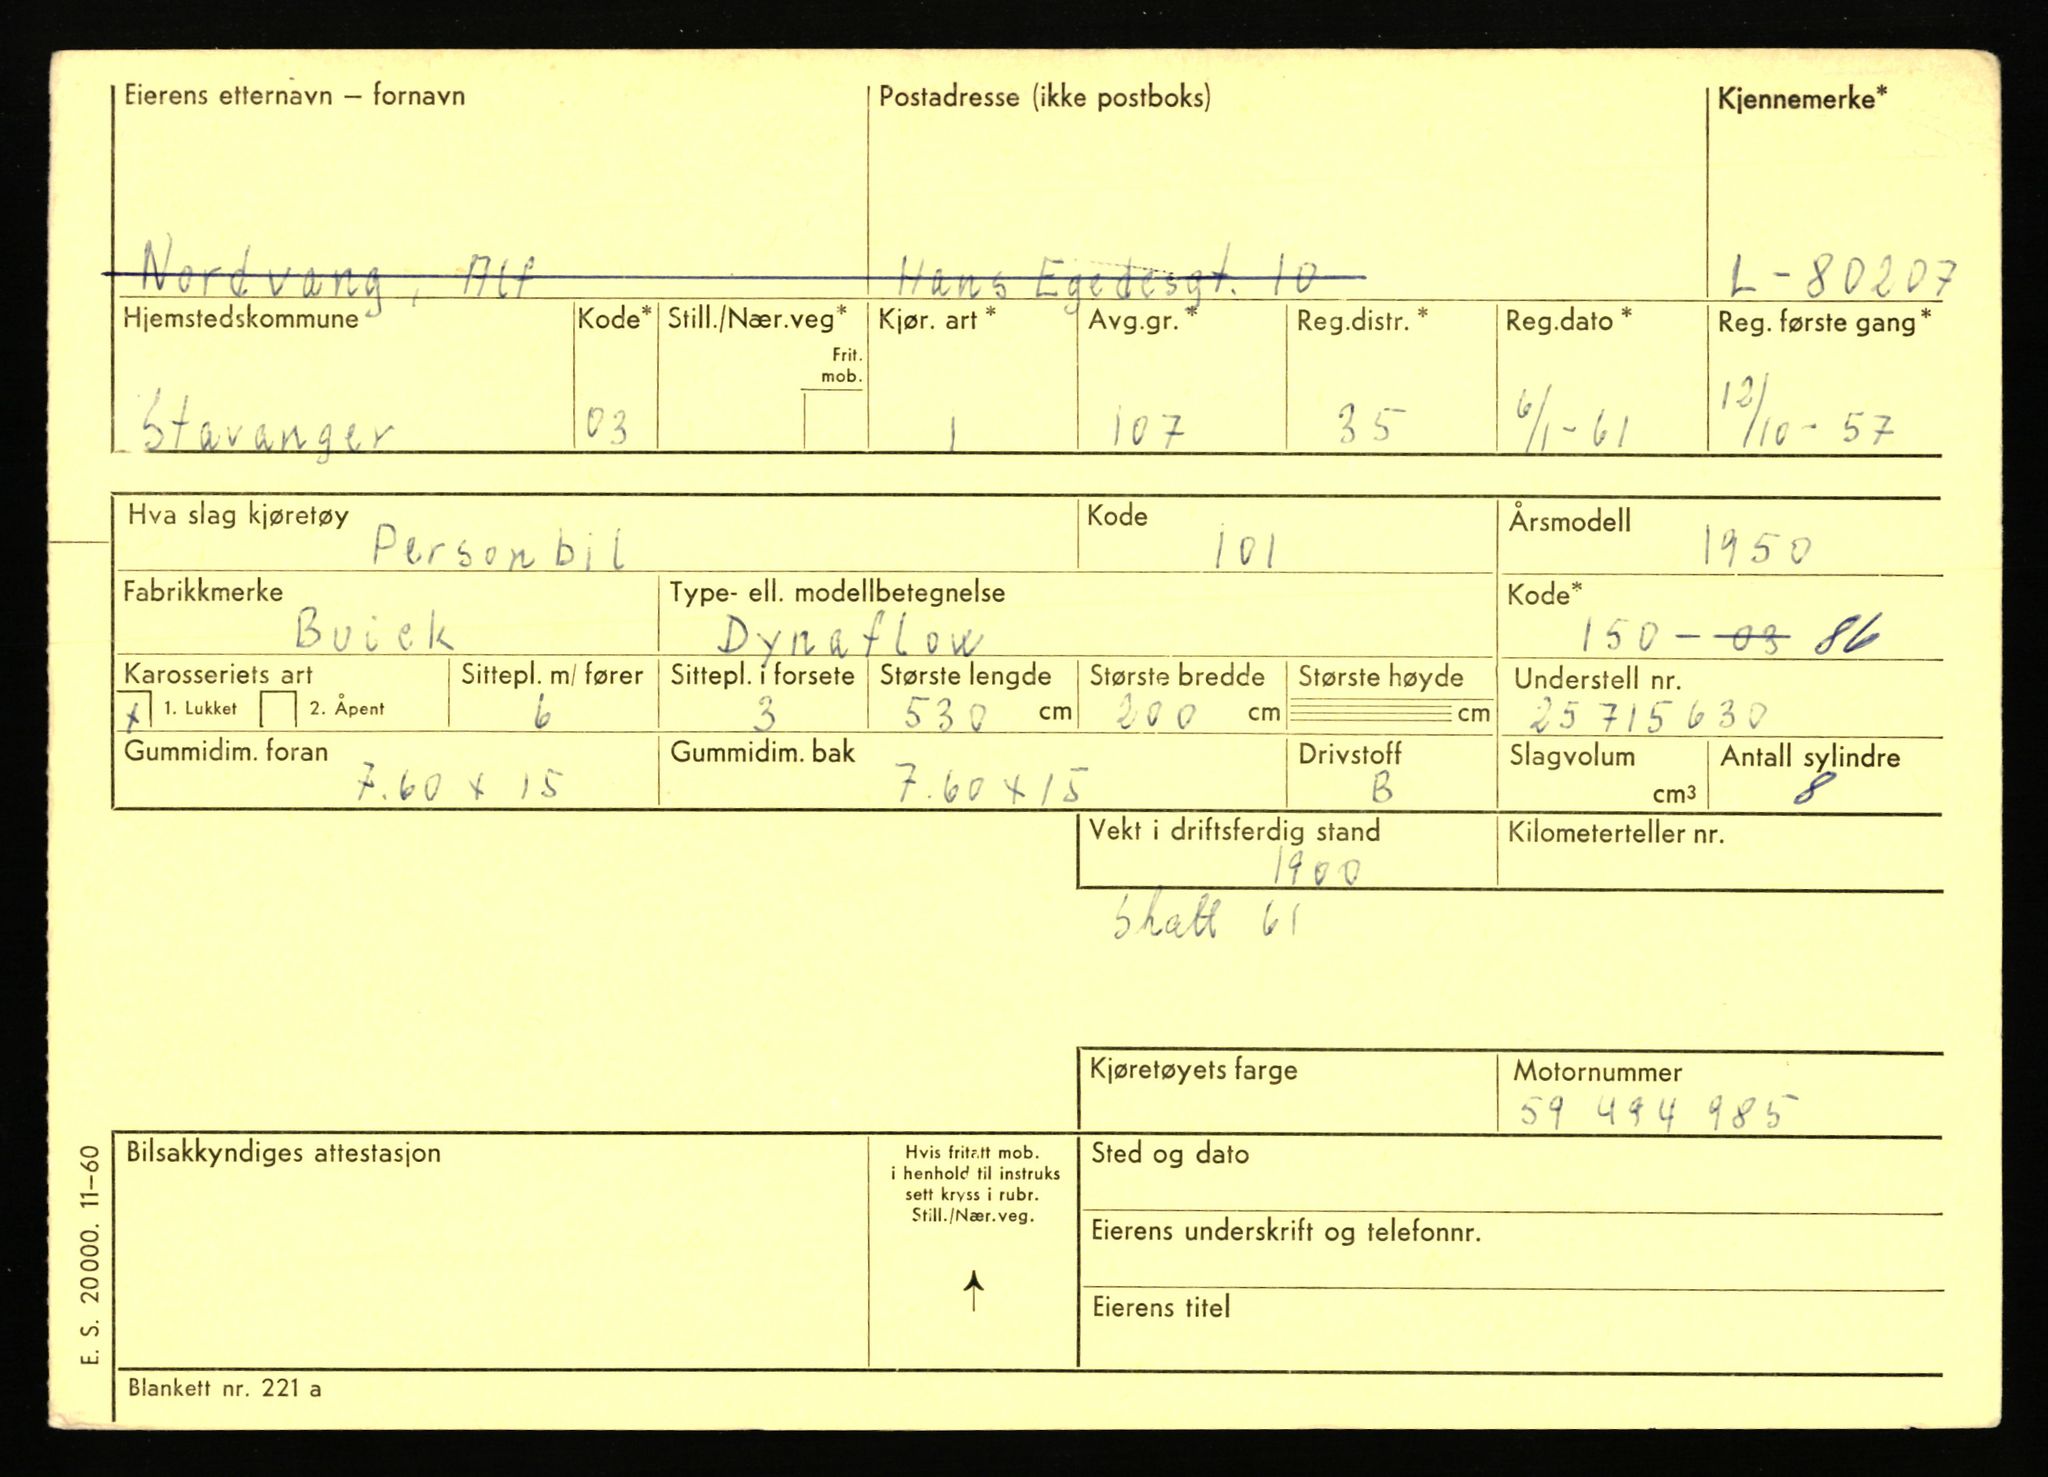 Eierens etternavn – fornavn Postadresse (ikke postboks) Kjennemerke*
Nordvang, Alf Hans Egedesgt. 10 L-80207
Hjemstedskommune Kode* Still./Nær.veg* Kjør. art* Avg.gr.* Reg.distr.* Reg.dato* Reg. første gang*
Frit.
mob.
Stavanger 03 1 107 35 6/1-61 12/10-57
Hva slag kjøretøy Personbil Kode 101 Årsmodell 1950
Fabrikkmerke Type- ell. modellbetegnelse Kode*
Buick Dynaflow 150 - 03 86
Karosseriets art Sittepl. m/ fører Sittepl. i forsete Største lengde Største bredde Største høyde Understell nr.
x 1. Lukket 2. Åpent 6 3 530 cm 200 cm cm 25715630
Gummidim. foran Gummidim. bak Drivstoff Slagvolum Antall sylindre
7.60 x 15 7.60 x 15 B cm³ 8
Vekt i driftsferdig stand Kilometerteller nr.
1900
Skatt 61
Kjøretøyets farge Motornummer
59 494 985
Bilsakkyndiges attestasjon Hvis fritatt mob. Sted og dato
i henhold til instruks
sett kryss i rubr.
Still./Nær.veg.
Eierens underskrift og telefonnr.
Eierens titel
Blankett nr. 221 a
E. S. 20000. 11–60